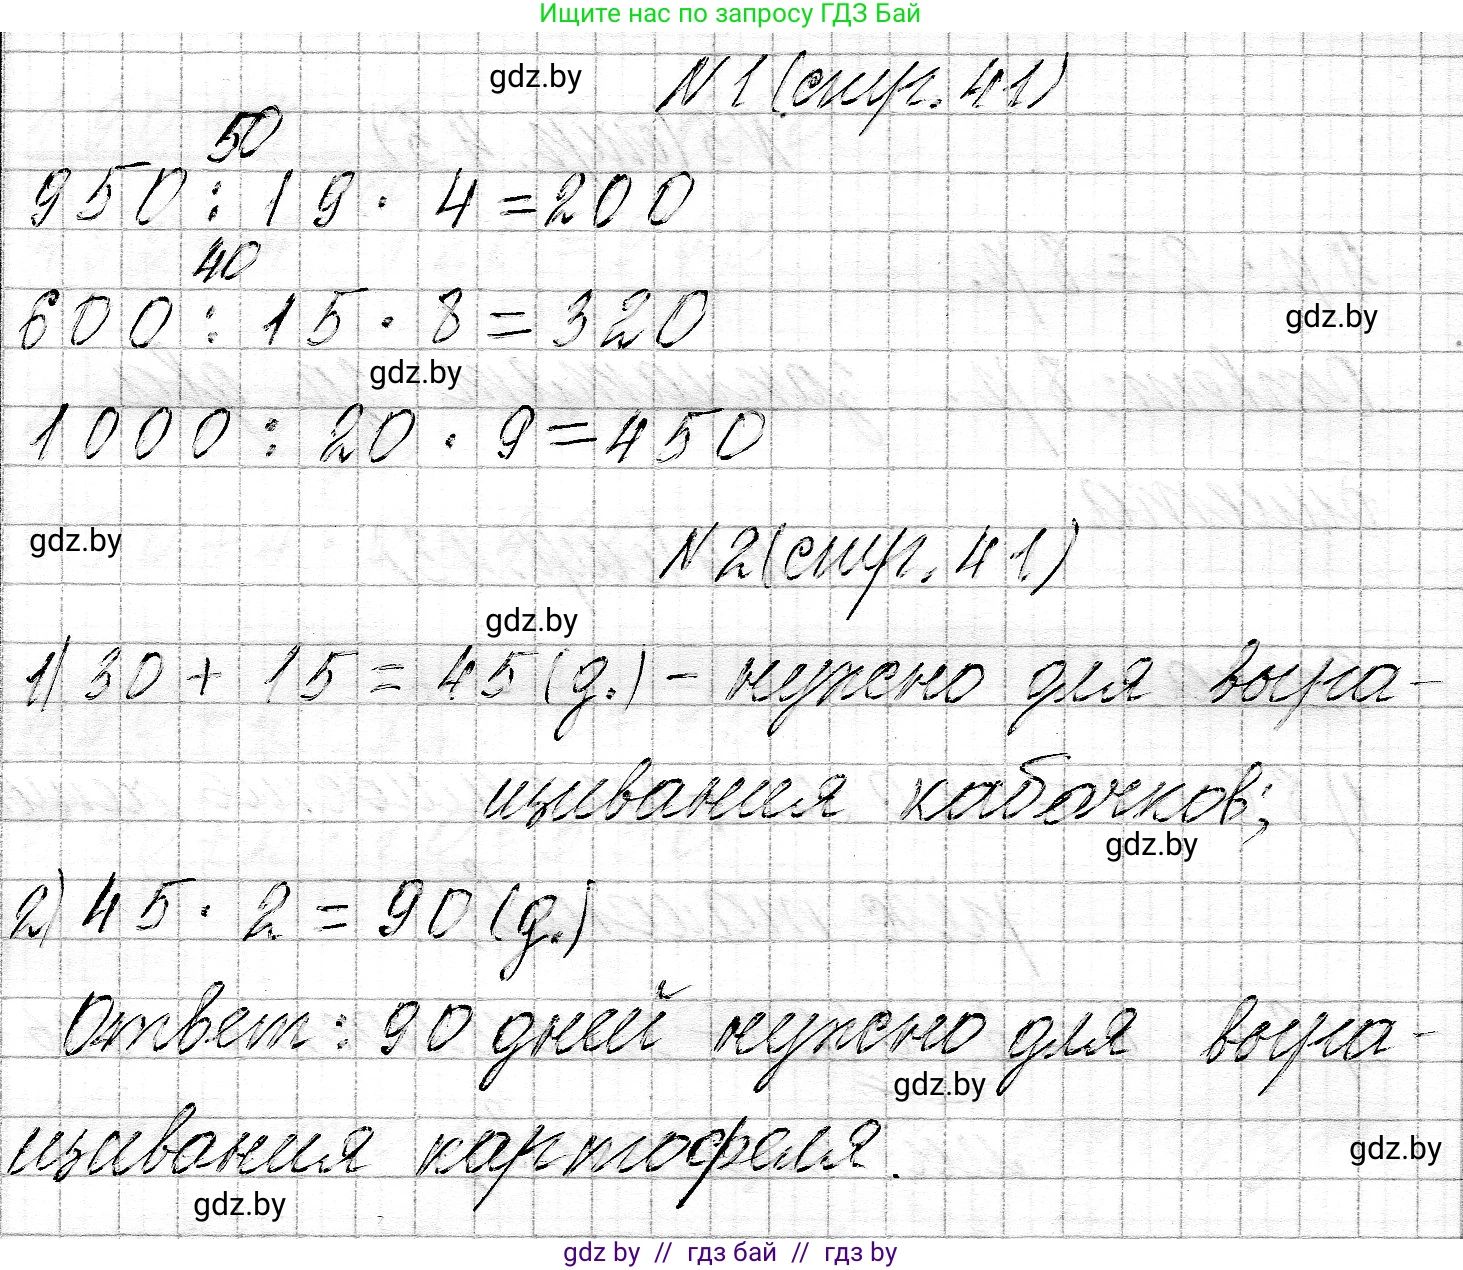 Ищите нас по запросу ГДЗ Бай
gdz.by N1 (стр. 41)
50
950 : 19 · 4 = 200
40
600 : 15 · 8 = 320
gdz.by
gdz.by
1000 : 20 · 9 = 450
gdz.by N2 (стр. 41)
gdz.by
1) 30 + 15 = 45 (д.) - нужно для выра-
щивания кабачков;
gdz.by
2) 45 · 2 = 90 (д.)
Ответ: 90 дней нужно для выра-
gdz.by
щивания картофеля.
gdz.by
gdz.by
gdz by // гдз бай // гдз by